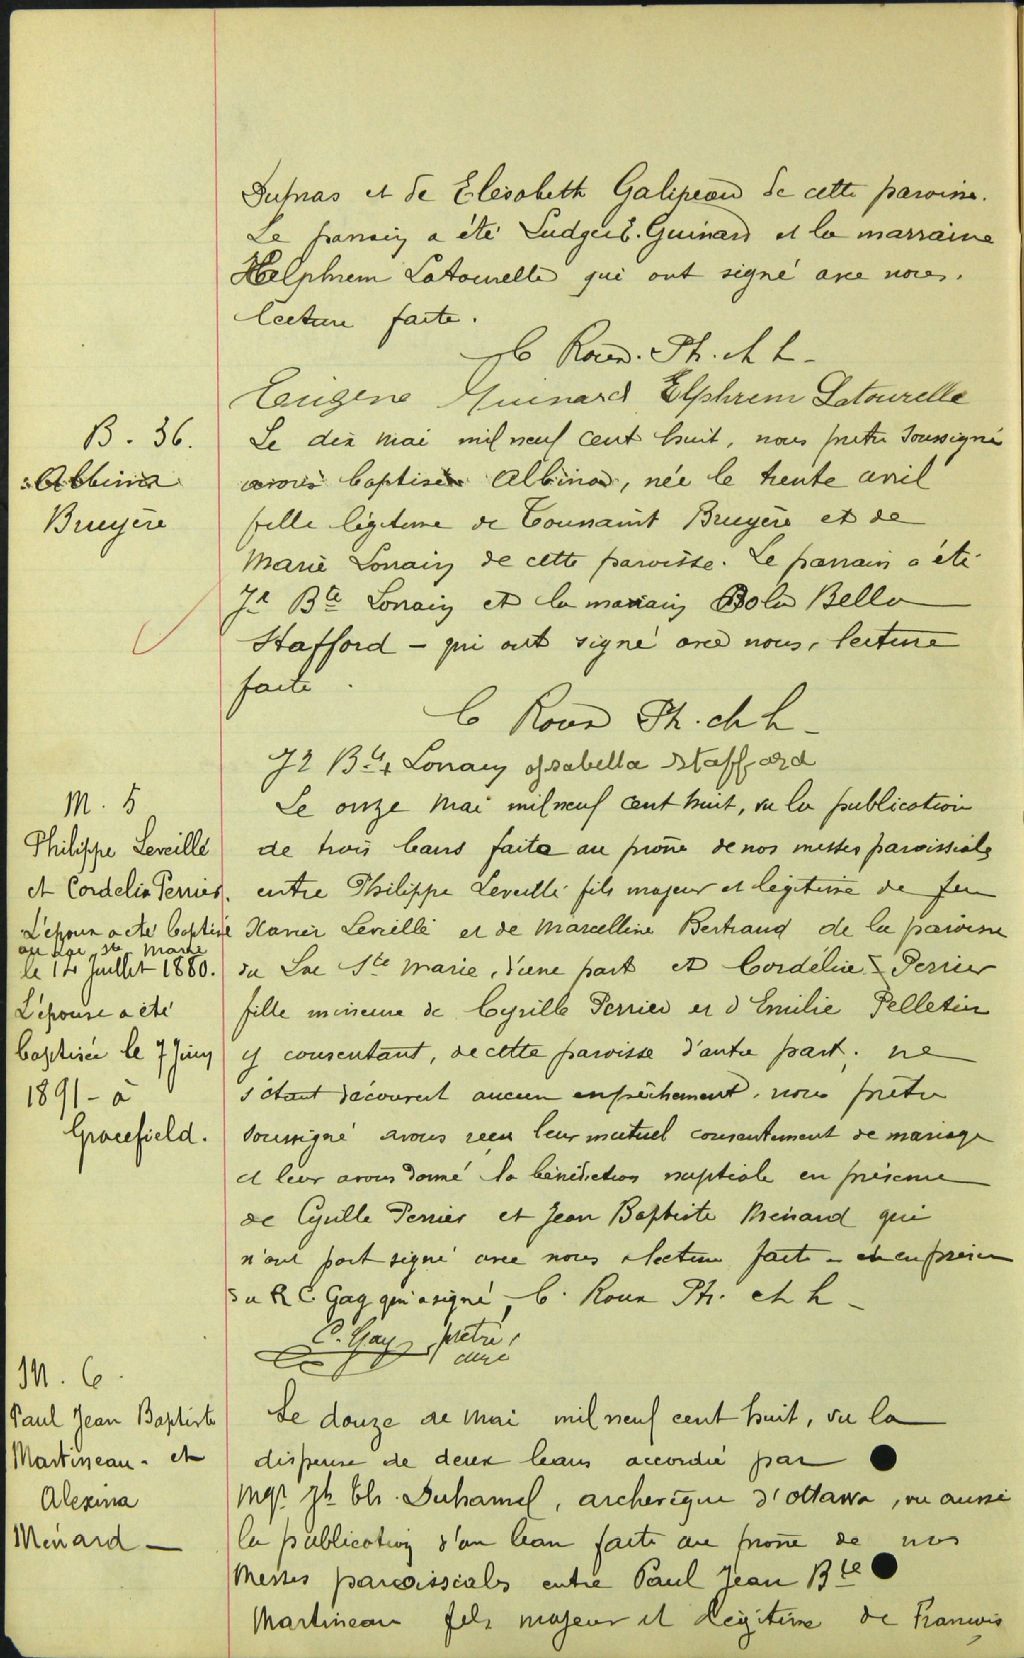 Dupras et de Elesabeth Galipeau de cette paroisse.
Le parrain a été Ludger E. Guinard et la marraine
Helphrem Latourelle qui ont signé avec nous.
lecture faite.
C Roux. Ptr. ch h -
Eugène Guinard Elphrem Latourelle
B. 36.
Albina
Bruyère
Le dix mai mil neuf cent huit, nous pretre soussigné
avons baptisé Albina, née le trente avril
fille légitime de Toussaint Bruyère et de
Marie Lorrain de cette paroisse. Le parrain a été
Jn Bte Lorrain et la marrain Bella
Stafford - qui ont signé avec nous, lecture
faite.
C Roux Ptr. ch h -
Jn Bte Lorrain Isabella Stafford
M. 5
Philippe Leveillé
et Cordelia Perrier.
L'époux a été baptisé
au Lac Ste Marie
le 14 Juillet 1880.
L'épouse a été
baptisée le 7 Juin
1891 - à
Gracefield.
Le onze Mai mil neuf cent huit, vu la publication
de trois bans faite au prône de nos messes paroissiales
entre Philippe Leveillé fils majeur et légitime de feu
Xavier Leveillé et de Marcelline Bertrand de la paroisse
du Lac Ste Marie, d'une part et Cordélie Perrier
fille mineure de Cyrille Perrier et d'Emilie Pelletier
y consentant, de cette paroisse d'autre part; ne
s'étant découvert aucun empêchement, nous prêtre
soussigné avons reçu leur mutuel consentement de mariage
et leur avons donné la bénédiction nuptiale en présence
de Cyrille Perrier et Jean Baptiste Ménard qui
n'ont part signé avec nous lecture faite - en présence
du R C. Gay qui a signé, C. Roux Ptr. ch h -
C. Gay, prêtre,
curé
M. 6.
Paul Jean Baptiste
Martineau - et
Alexina
Ménard -
Le douze de Mai mil neuf cent huit, vu la
dispense de deux bans accordée par
Mgr Jh Th. Duhamel, archevêque d'Ottawa, vu aussi
la publication d'un ban faite au prône de nos
Messes paroissiales entre Paul Jean Bte
Martineau fils majeur et légitime de François